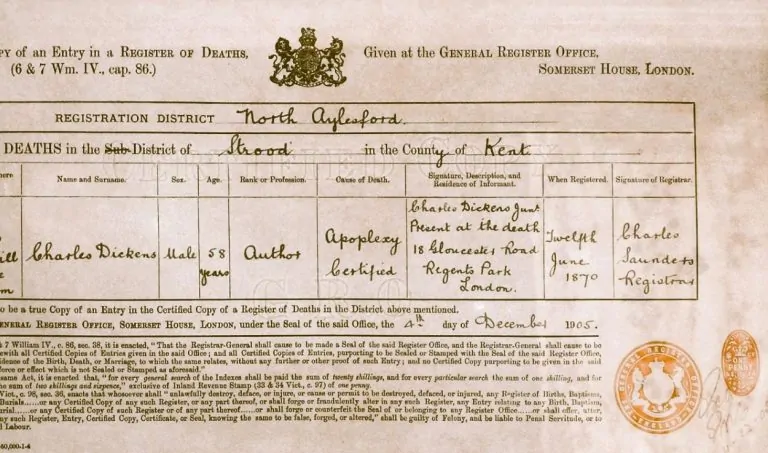 PY of an Entry in a REGISTER OF DEATHS, Given at the GENERAL REGISTER OFFICE,
(6 & 7 Wm. IV., cap. 86.) SOMERSET HOUSE, LONDON.
REGISTRATION DISTRICT North Aylesford.
DEATHS in the Sub-District of Strood in the County of Kent.
here Name and Surname. Sex. Age. Rank or Profession. Cause of Death. Signature, Description, and Residence of Informant. When Registered. Signature of Registrar.
ill Charles Dickens Male 58 years Author Apoplexy Certified Charles Dickens Junr Present at the death 18 Gloucester Road Regents Park London. Twelfth June 1870 Charles Saunders Registrar
o be a true Copy of an Entry in the Certified Copy of a Register of Deaths in the District above mentioned.
ENERAL REGISTER OFFICE, SOMERSET HOUSE, LONDON, under the Seal of the said Office, the 4th day of December 1905.
7 William IV., c. 86, sec. 38, it is enacted, "That the Registrar-General shall cause to be made a Seal of the said Register Office, and the Registrar-General shall cause to be
with all Certified Copies of Entries given in the said Office; and all Certified Copies of Entries, purporting to be Sealed or Stamped with the Seal of the said Register Office,
idence of the Birth, Death, or Marriage, to which the same relates, without any further or other proof of such Entry; and no Certified Copy purporting to be given in the said
force or effect which is not Sealed or Stamped as aforesaid."
same Act, it is enacted, that "for every general search of the Indexes shall be paid the sum of twenty shillings, and for every particular search the sum of one shilling, and for
he sum of two shillings and sixpence," exclusive of Inland Revenue Stamp (33 & 34 Vict., c. 97) of one penny.
Vict., c. 98, sec. 36, enacts that whosoever shall "unlawfully destroy, deface, or injure, or cause or permit to be destroyed, defaced, or injured, any Register of Births, Baptisms,
Burials......or any Certified Copy of any such Register, or any part thereof, or shall forge or fraudulently alter in any such Register, any Entry relating to any Birth, Baptism,
urial......or any Certified Copy of such Register or of any part thereof......or shall forge or counterfeit the Seal of or belonging to any Register Office......or shall offer, utter,
ny such Register, Entry, Certified Copy, Certificate, or Seal, knowing the same to be false, forged, or altered," shall be guilty of Felony, and be liable to Penal Servitude, or to
d Labour.
GENERAL REGISTER OFFICE
ONE PENNY